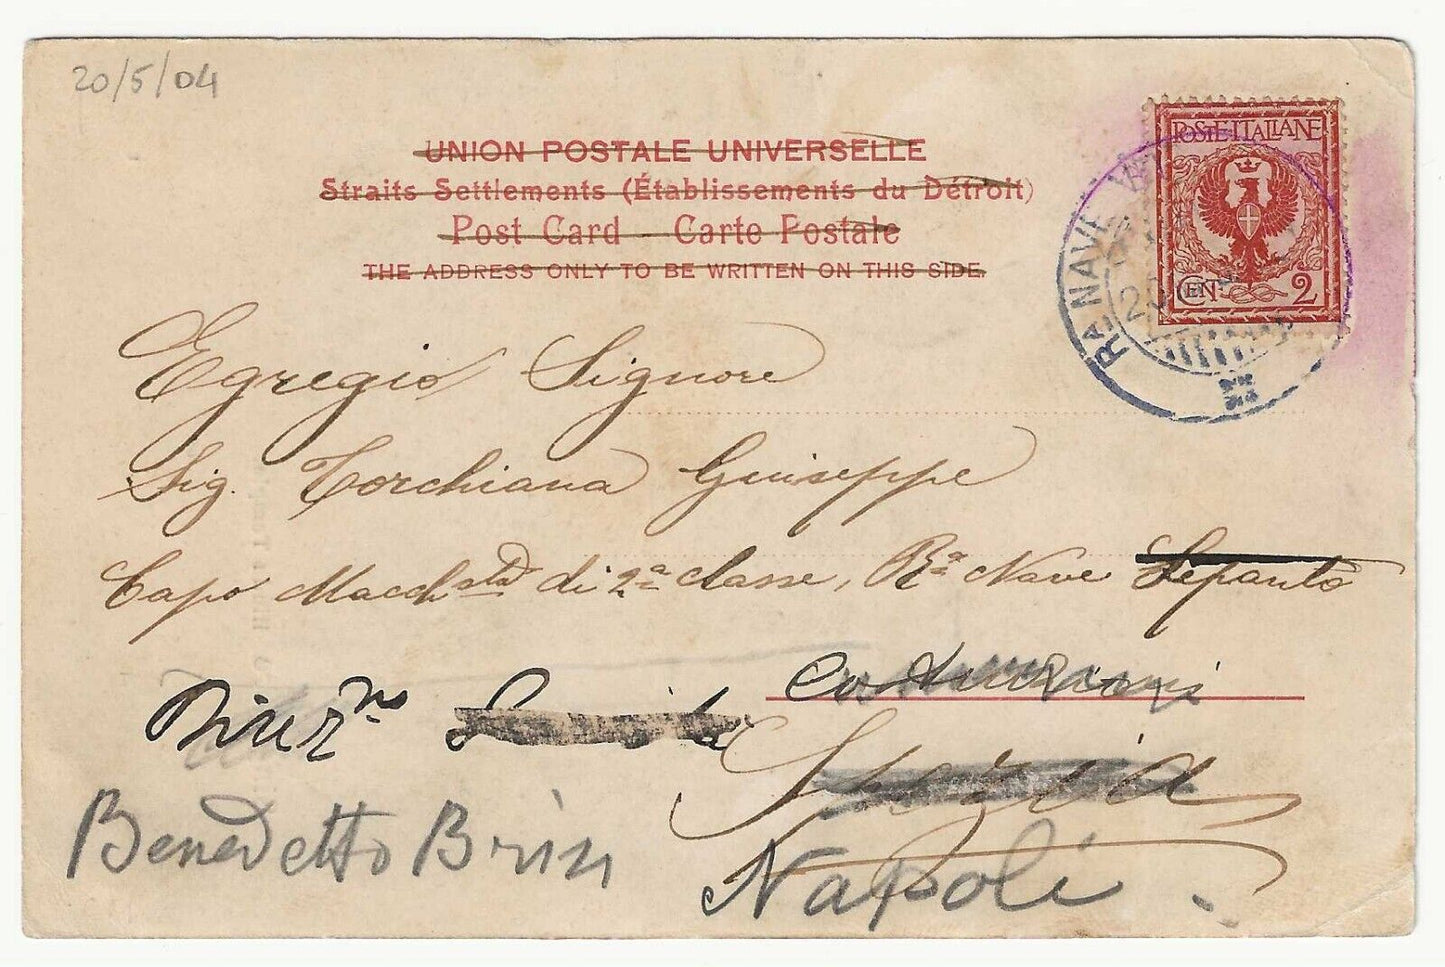 20/5/04
UNION POSTALE UNIVERSELLE
Straits Settlements (Établissements du Détroit)
Post Card – Carte Postale
THE ADDRESS ONLY TO BE WRITTEN ON THIS SIDE.
POSTE ITALIANE
CEN. 2
RA NAVE
20
Egregio Signore
Sig. Torchiana Giuseppe
Capo Macchsta di 2a classe, Ra Nave Lepanto
Costruzioni
Spezia
Benedetto Brin
Napoli